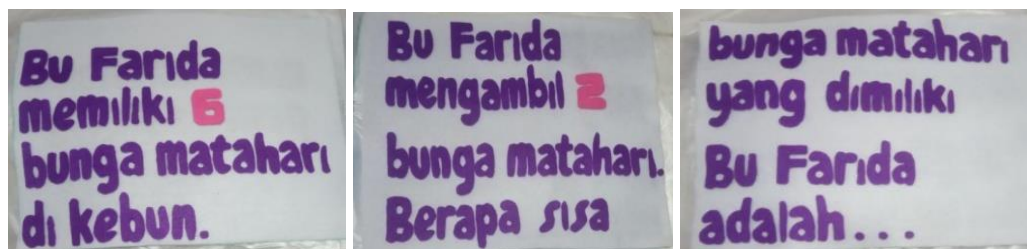 Bu Farida
memiliki 6
bunga matahari
di kebun.
Bu Farida
mengambil 2
bunga matahari.
Berapa sisa
bunga matahari
yang dimiliki
Bu Farida
adalah...